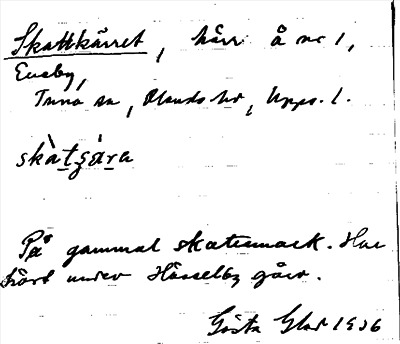 Skattkärret, kärr å nr 1,
Eneby,
Tuna sn, Olands hd, Upps. l.
På gammal skattemark. Har
hört under Hässelby gård.
Gösta 1936